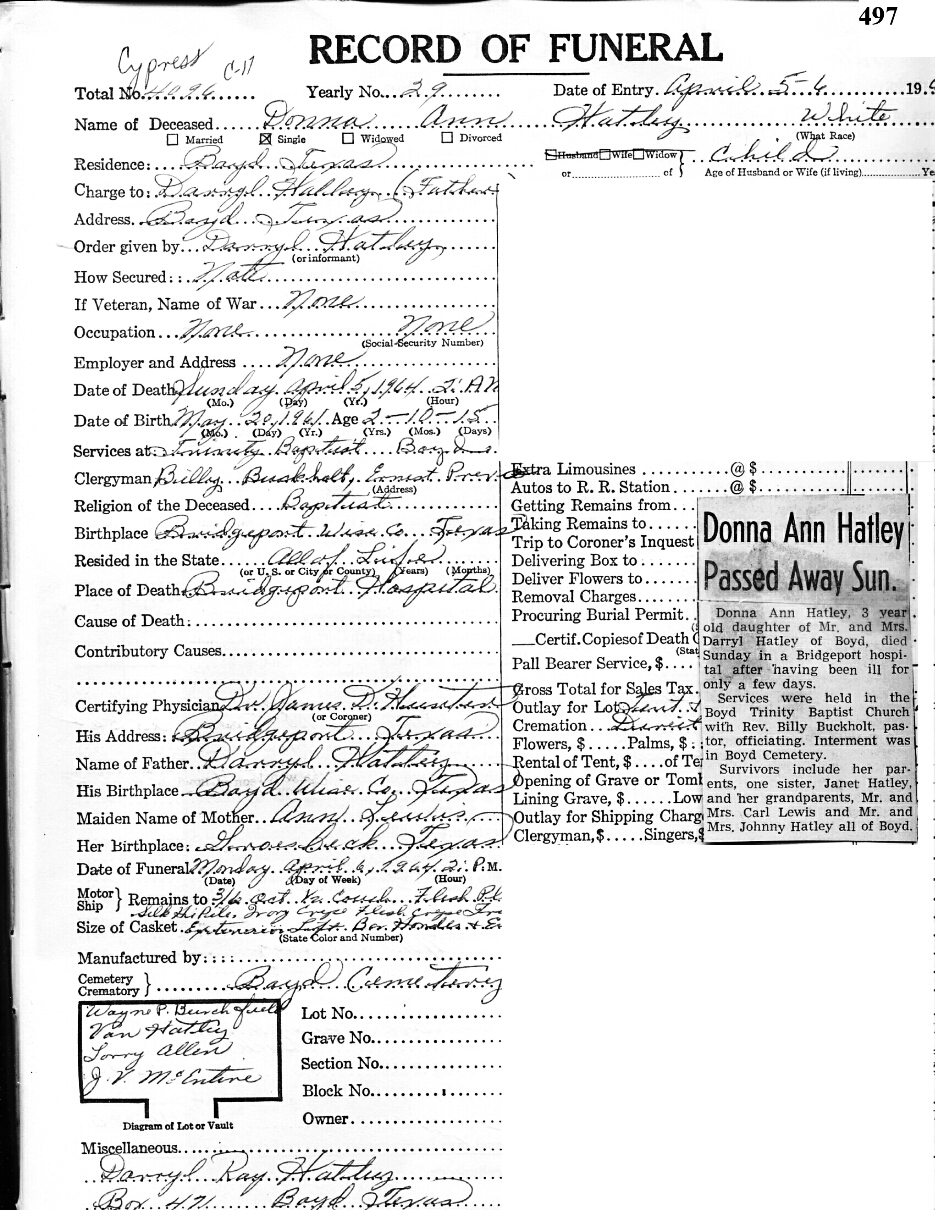 497
RECORD OF FUNERAL
Cypress C-17
Total No. 4096 Yearly No. 29 Date of Entry April 5-6 19
Name of Deceased Donna Ann Hatley White
Married Single Widowed Divorced (What Race)
Residence: Boyd Texas Husband Wife Widow Child
or of Age of Husband or Wife (if living)
Charge to: Darryl Hatley (Father
Address Boyd Texas
Order given by Darryl Hatley
(or informant)
How Secured: Note
If Veteran, Name of War None
Occupation None None
(Social Security Number)
Employer and Address None
Date of Death Sunday April 5, 1964
(Mo.) (Day) (Yr.) (Hour)
Date of Birth May 20, 1961 Age 2-10-15
(Mo.) (Day) (Yr.) (Yrs.) (Mos.) (Days)
Services at Trinity Baptist Boyd
Clergyman Billy Buckholt, Ernest
(Address)
Religion of the Deceased Baptist
Birthplace Bridgeport Wise Co. Texas
Resided in the State All of Life
(or U. S. or City or County) (Years) (Months)
Place of Death Bridgeport Hospital
Cause of Death:
Contributory Causes
Certifying Physician Dr. James D.
(or Coroner)
His Address: Bridgeport Texas
Name of Father Darryl Hatley
His Birthplace Boyd Wise Co. Texas
Maiden Name of Mother Ann Lewis
Her Birthplace: Groesbeck Texas
Date of Funeral Monday April 6, 1964 2: P.M.
(Date) (Day of Week) (Hour)
Motor Ship Remains to 3/6 Oct. Flesh
Size of Casket
(State Color and Number)
Manufactured by:
Cemetery Crematory Boyd Cemetery
Wayne P. Burchfield
Van Hatley
Allen
J. V. McEntire
Diagram of Lot or Vault
Lot No.
Grave No.
Section No.
Block No.
Owner
Miscellaneous
Darryl Ray Hatley
Box 471 Boyd Texas
Extra Limousines @ $
Autos to R. R. Station @ $
Getting Remains from
Taking Remains to
Trip to Coroner's Inquest
Delivering Box to
Deliver Flowers to
Removal Charges
Procuring Burial Permit
Certif. Copies of Death
(Stat
Pall Bearer Service, $
Gross Total for Sales Tax
Outlay for Lot
Cremation
Flowers, $ Palms, $
Rental of Tent, $ of Te
Opening of Grave or Tomb
Lining Grave, $ Low
Outlay for Shipping Charg
Clergyman, $ Singers, $
Donna Ann Hatley
Passed Away Sun.
Donna Ann Hatley, 3 year
old daughter of Mr. and Mrs.
Darryl Hatley of Boyd, died
Sunday in a Bridgeport hospi-
tal after having been ill for
only a few days.
Services were held in the
Boyd Trinity Baptist Church
with Rev. Billy Buckholt, pas-
tor, officiating. Interment was
in Boyd Cemetery.
Survivors include her par-
ents, one sister, Janet Hatley,
and her grandparents, Mr. and
Mrs. Carl Lewis and Mr. and
Mrs. Johnny Hatley all of Boyd.